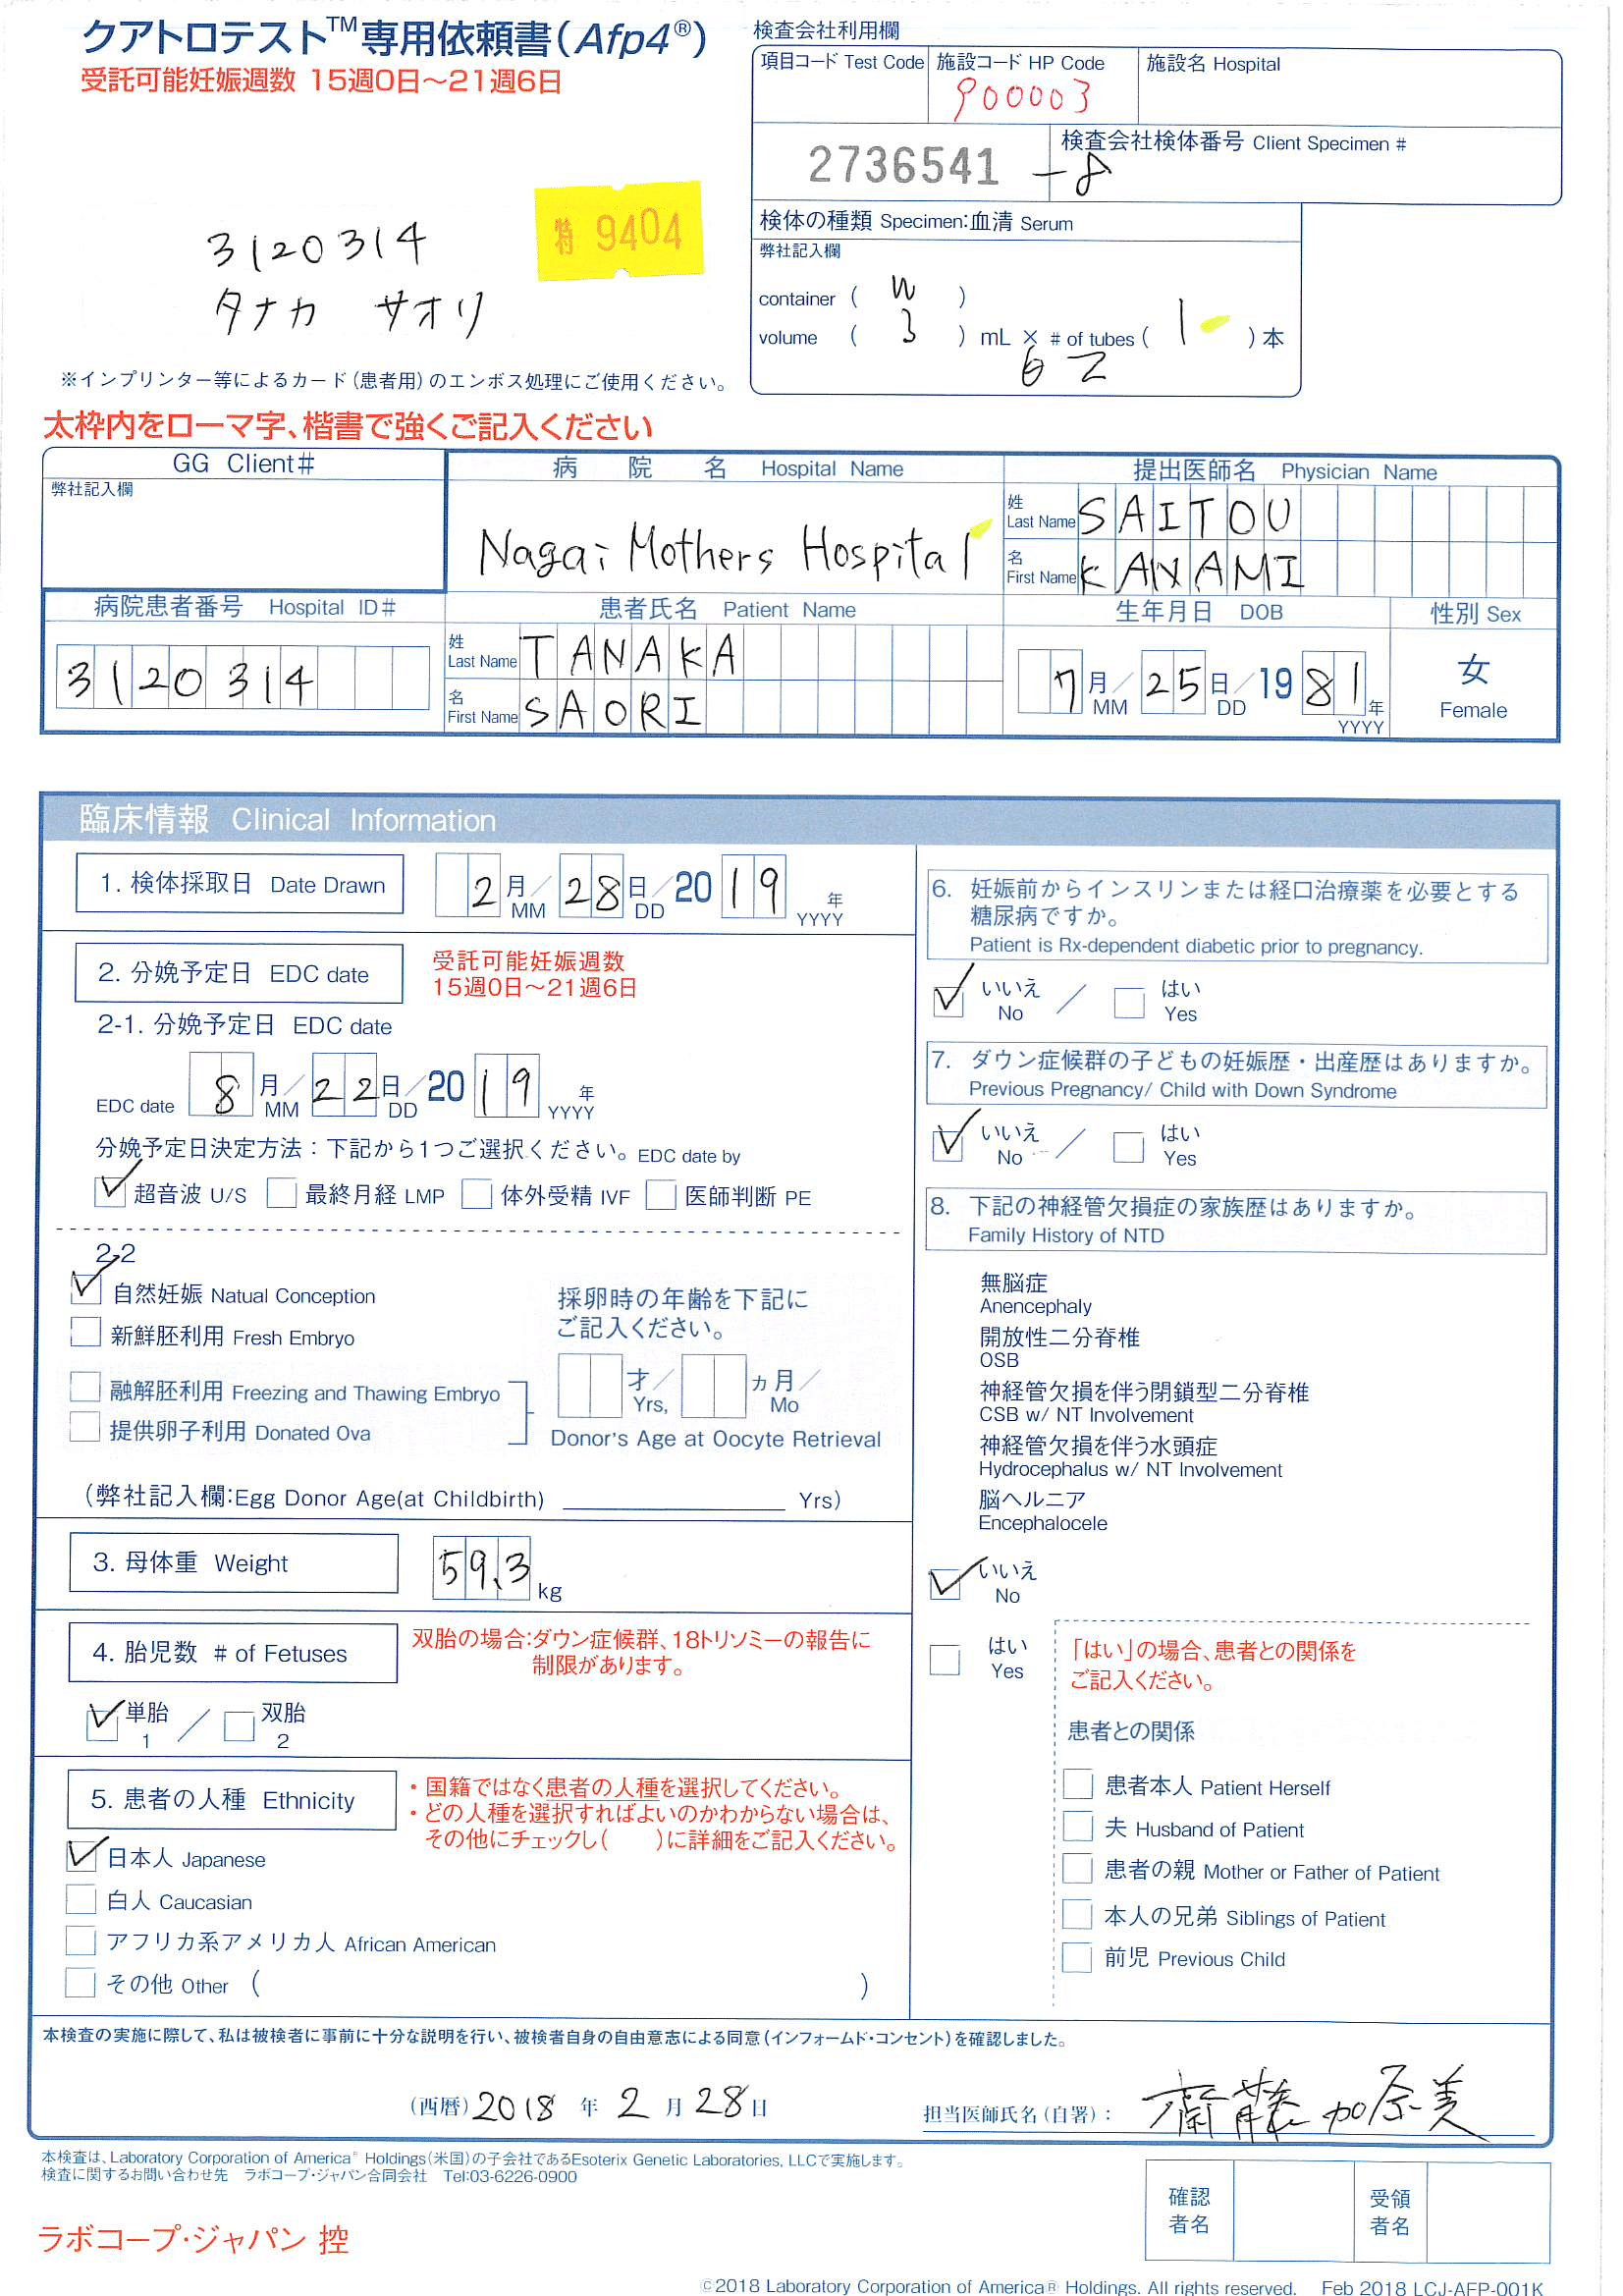 クアトロテスト™専用依頼書(Afp4®)
受託可能妊娠週数 15週0日～21週6日
検査会社利用欄
項目コード Test Code 施設コード HP Code 施設名 Hospital
900003
2736541 -8
検査会社検体番号 Client Specimen #
特 9404
3120314
タナカ サオリ
検体の種類 Specimen:血清 Serum
弊社記入欄
container ( W )
volume ( 3 ) mL × # of tubes ( 1 ) 本
62
※インプリンター等によるカード(患者用)のエンボス処理にご使用ください。
太枠内をローマ字、楷書で強くご記入ください
GG Client#
弊社記入欄
病院名 Hospital Name
Nagai Mothers Hospital
提出医師名 Physician Name
姓 Last Name SAITOU
名 First Name KANAMI
病院患者番号 Hospital ID#
3120314
患者氏名 Patient Name
姓 Last Name TANAKA
名 First Name SAORI
生年月日 DOB
7月/25日/1981年
MM DD YYYY
性別 Sex
女
Female
臨床情報 Clinical Information
1. 検体採取日 Date Drawn
2月/28日/2019年
MM DD YYYY
2. 分娩予定日 EDC date
受託可能妊娠週数
15週0日～21週6日
2-1. 分娩予定日 EDC date
EDC date 8月/22日/2019年
MM DD YYYY
分娩予定日決定方法:下記から1つご選択ください。EDC date by
超音波 U/S 最終月経 LMP 体外受精 IVF 医師判断 PE
2-2
自然妊娠 Natual Conception
新鮮胚利用 Fresh Embryo
融解胚利用 Freezing and Thawing Embryo
提供卵子利用 Donated Ova
採卵時の年齢を下記に
ご記入ください。
才/ カ月/
Yrs, Mo
Donor's Age at Oocyte Retrieval
(弊社記入欄:Egg Donor Age(at Childbirth) Yrs)
3. 母体重 Weight
59.3 kg
4. 胎児数 # of Fetuses
双胎の場合:ダウン症候群、18トリソミーの報告に
制限があります。
単胎 1 / 双胎 2
5. 患者の人種 Ethnicity
・国籍ではなく患者の人種を選択してください。
・どの人種を選択すればよいのかわからない場合は、
その他にチェックし( )に詳細をご記入ください。
日本人 Japanese
白人 Caucasian
アフリカ系アメリカ人 African American
その他 Other ( )
6. 妊娠前からインスリンまたは経口治療薬を必要とする
糖尿病ですか。
Patient is Rx-dependent diabetic prior to pregnancy.
いいえ No / はい Yes
7. ダウン症候群の子どもの妊娠歴・出産歴はありますか。
Previous Pregnancy/ Child with Down Syndrome
いいえ No / はい Yes
8. 下記の神経管欠損症の家族歴はありますか。
Family History of NTD
無脳症
Anencephaly
開放性二分脊椎
OSB
神経管欠損を伴う閉鎖型二分脊椎
CSB w/ NT Involvement
神経管欠損を伴う水頭症
Hydrocephalus w/ NT Involvement
脳ヘルニア
Encephalocele
いいえ
No
はい
Yes
「はい」の場合、患者との関係を
ご記入ください。
患者との関係
患者本人 Patient Herself
夫 Husband of Patient
患者の親 Mother or Father of Patient
本人の兄弟 Siblings of Patient
前児 Previous Child
本検査の実施に際して、私は被検者に事前に十分な説明を行い、被検者自身の自由意志による同意(インフォームド・コンセント)を確認しました。
(西暦) 2018年 2月 28日
担当医師氏名(自署): 齋藤加奈美
本検査は、Laboratory Corporation of America® Holdings(米国)の子会社であるEsoterix Genetic Laboratories, LLCで実施します。
検査に関するお問い合わせ先 ラボコープ・ジャパン合同会社 Tel:03-6226-0900
確認者名 受領者名
ラボコープ・ジャパン 控
©2018 Laboratory Corporation of America® Holdings. All rights reserved. Feb 2018 LCJ-AFP-001K